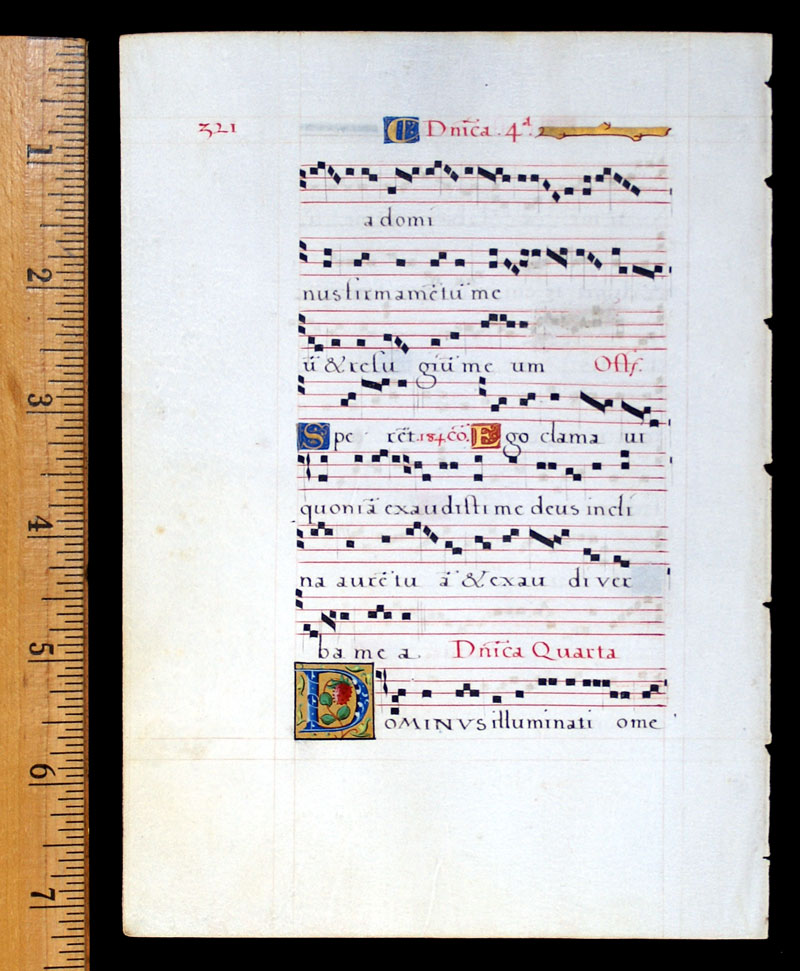 321 C Dnīca . 4ª
a domi
nus firmamētū me
ū & refu giū me um Offʃ.
Spe rēt. 184 cō. Ego clama ui
quoniā exaudisti me deus incli
na aurē tu ā & exau di ver
ba me a. Dnīca Quarta
DOMINVS illuminati o me
1
2
3
4
5
6
7